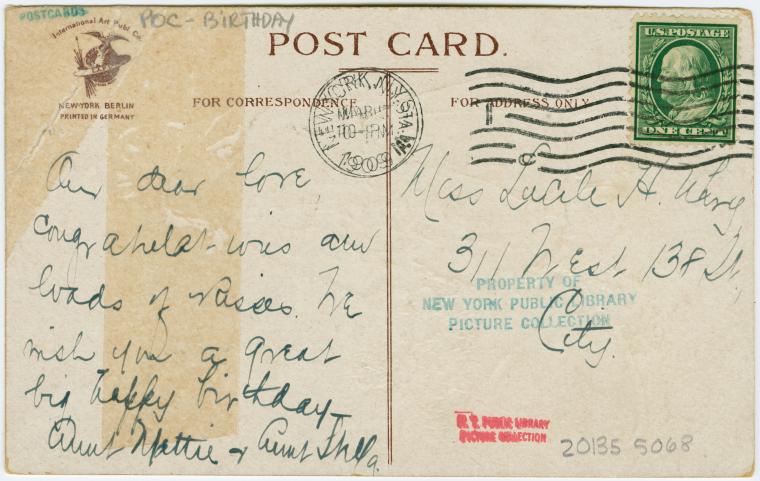 POSTCARDS
POC - BIRTHDAY
International Art Publ. Co.
NEW-YORK BERLIN
PRINTED IN GERMANY
POST CARD.
FOR CORRESPONDENCE
FOR ADDRESS ONLY
NEW YORK, N.Y. STA.
MAR
1909
U.S. POSTAGE
ONE CENT
Our dear love
congratulations and
loads of kisses. We
wish you a great
big happy birthday
Aunt Mattie & Aunt
Miss Lucile H.
311 West 138 St
City.
PROPERTY OF
NEW YORK PUBLIC LIBRARY
PICTURE COLLECTION
N. Y. PUBLIC LIBRARY
PICTURE COLLECTION
20135 5068